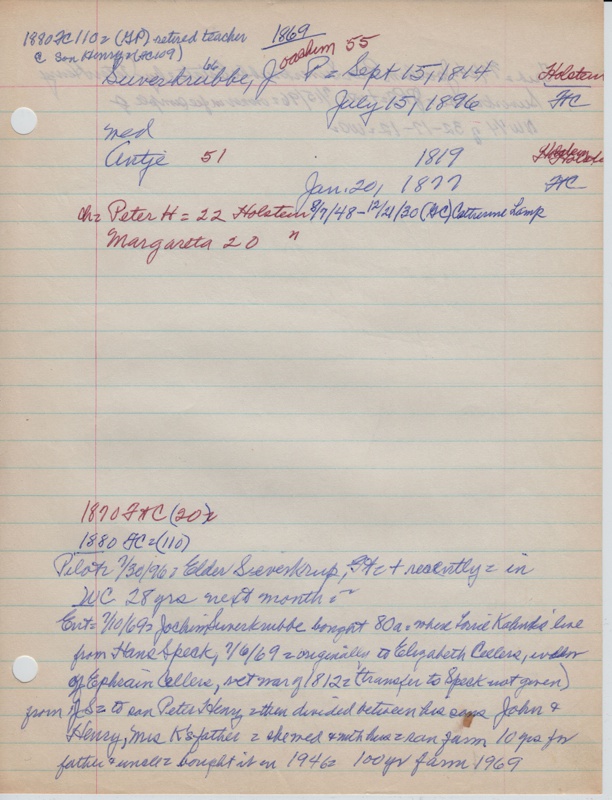 1880 FC 110 = (GP) retired teacher
C Son Henry = (FC 109)
1869
Suverkrubbe, Joachim 55 P = Sept 15, 1814 Holstein
bb
July 15, 1896 FC
wed
Antje 51 1819 Holstein
Jan. 20, 1877 FC
ch = Peter H = 22 Holstein 8/7/48 - 12/21/30 (FC) Catherine Lamp
Margareta 20 "
1870 FAC (20)
1880 FC = (110)
Pilot 7/30/96 = Elder Sieverkrup, + recently = in
WC 28 yrs next month =
Ent = 7/10/69 = Jochim Suverkrubbe bought 80a = where live
from Hans Speck, 7/6/69 = originally to Elizabeth Cellers, widow
of Ephraim Cellers, vet war of 1812 = (transfer to Speck not given)
from JS = to son Peter Henry = then divided between his sons John &
Henry, Mrs K's father = she wed & with hus = ran farm 10 yrs for
father & uncle = bought it in 1946 = 100 yr farm 1969